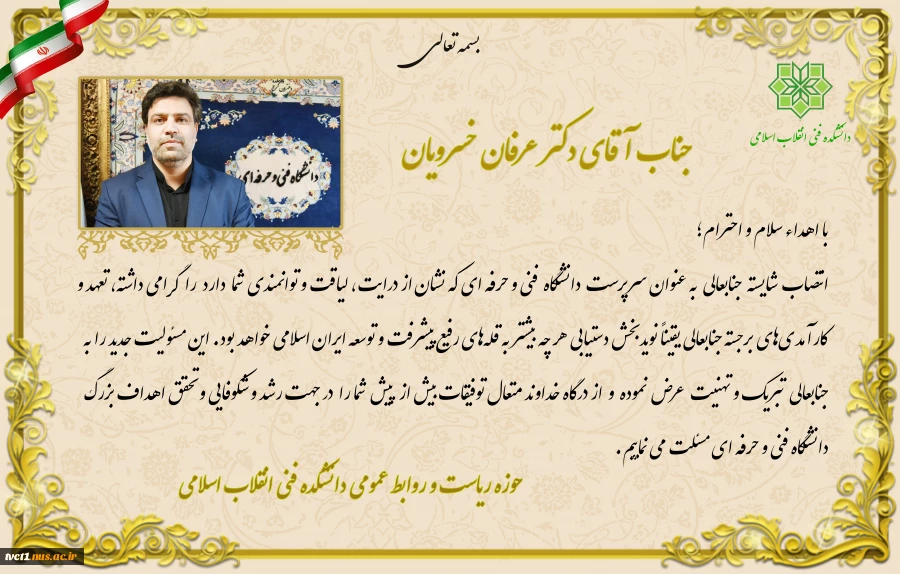 بسمه تعالی
دانشکده فنی انقلاب اسلامی
جناب آقای دکتر عرفان خسرویان
دانشگاه فنی و حرفه ای
با اهداء سلام و احترام؛
انتصاب شایسته جنابعالی به عنوان سرپرست دانشگاه فنی و حرفه ای که نشان از درایت، لیاقت و توانمندی شما دارد را گرامی داشته، تعهد و
کارآمدی‌های برجسته جنابعالی یقیناً نویدبخش دستیابی هر چه بیشتر به قله‌های رفیع پیشرفت و توسعه ایران اسلامی خواهد بود. این مسئولیت جدید را به
جنابعالی تبریک و تهنیت عرض نموده و از درگاه خداوند متعال توفیقات بیش از پیش شما را در جهت رشد و شکوفایی و تحقق اهداف بزرگ
دانشگاه فنی و حرفه ای مسئلت می نماییم.
حوزه ریاست و روابط عمومی دانشکده فنی انقلاب اسلامی
tvct1.nus.ac.ir